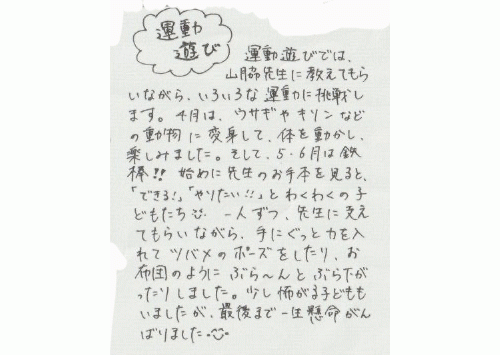 運動
遊び
運動遊びでは、
山脇先生に教えてもら
いながら、いろいろな運動に挑戦し
ます。4月は、ウサギやキリンなど
の動物に変身して、体を動かし、
楽しみました。そして、5・6月は鉄
棒!! 始めに先生のお手本を見ると、
「できる!」「やりたい!!」とわくわくの子
どもたち 一人ずつ、先生に支え
てもらいながら、手にぐっと力を入
れてツバメのポーズをしたり、お
布団のようにぶら〜んとぶら下が
ったりしました。少し怖がる子どもも
いましたが、最後まで一生懸命がん
ばりました。